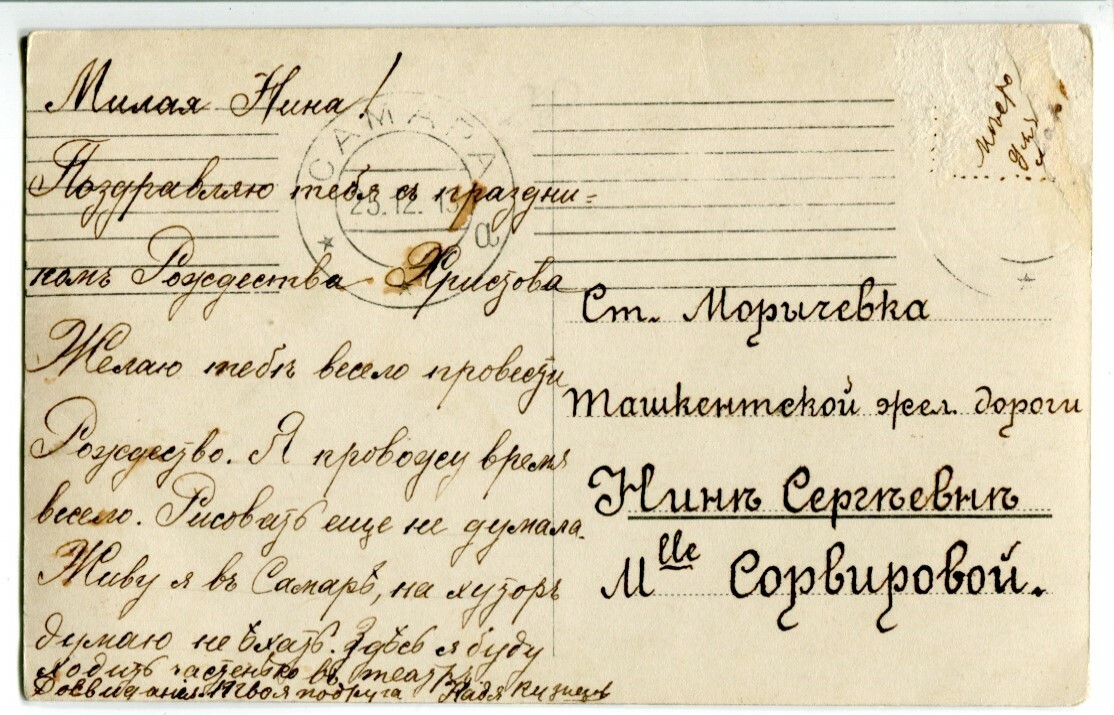 Милая Нина!
Поздравляю тебя съ праздни=
комъ Рождества Христова
Желаю тебѣ весело провести
Рождество. Я провожу время
весело. Рисовать еще не думала.
Живу я въ Самарѣ, на хуторъ
думаю не ѣхать. Здѣсь я буду
ходить частенько въ театръ
Досвиданія твоя подруга Надя
САМАРА
23.12.13
а
Мѣсто
для
Ст. Морычевка
Ташкентской жел. дороги
Нинѣ Сергѣевнѣ
Mlle Сорвировой.